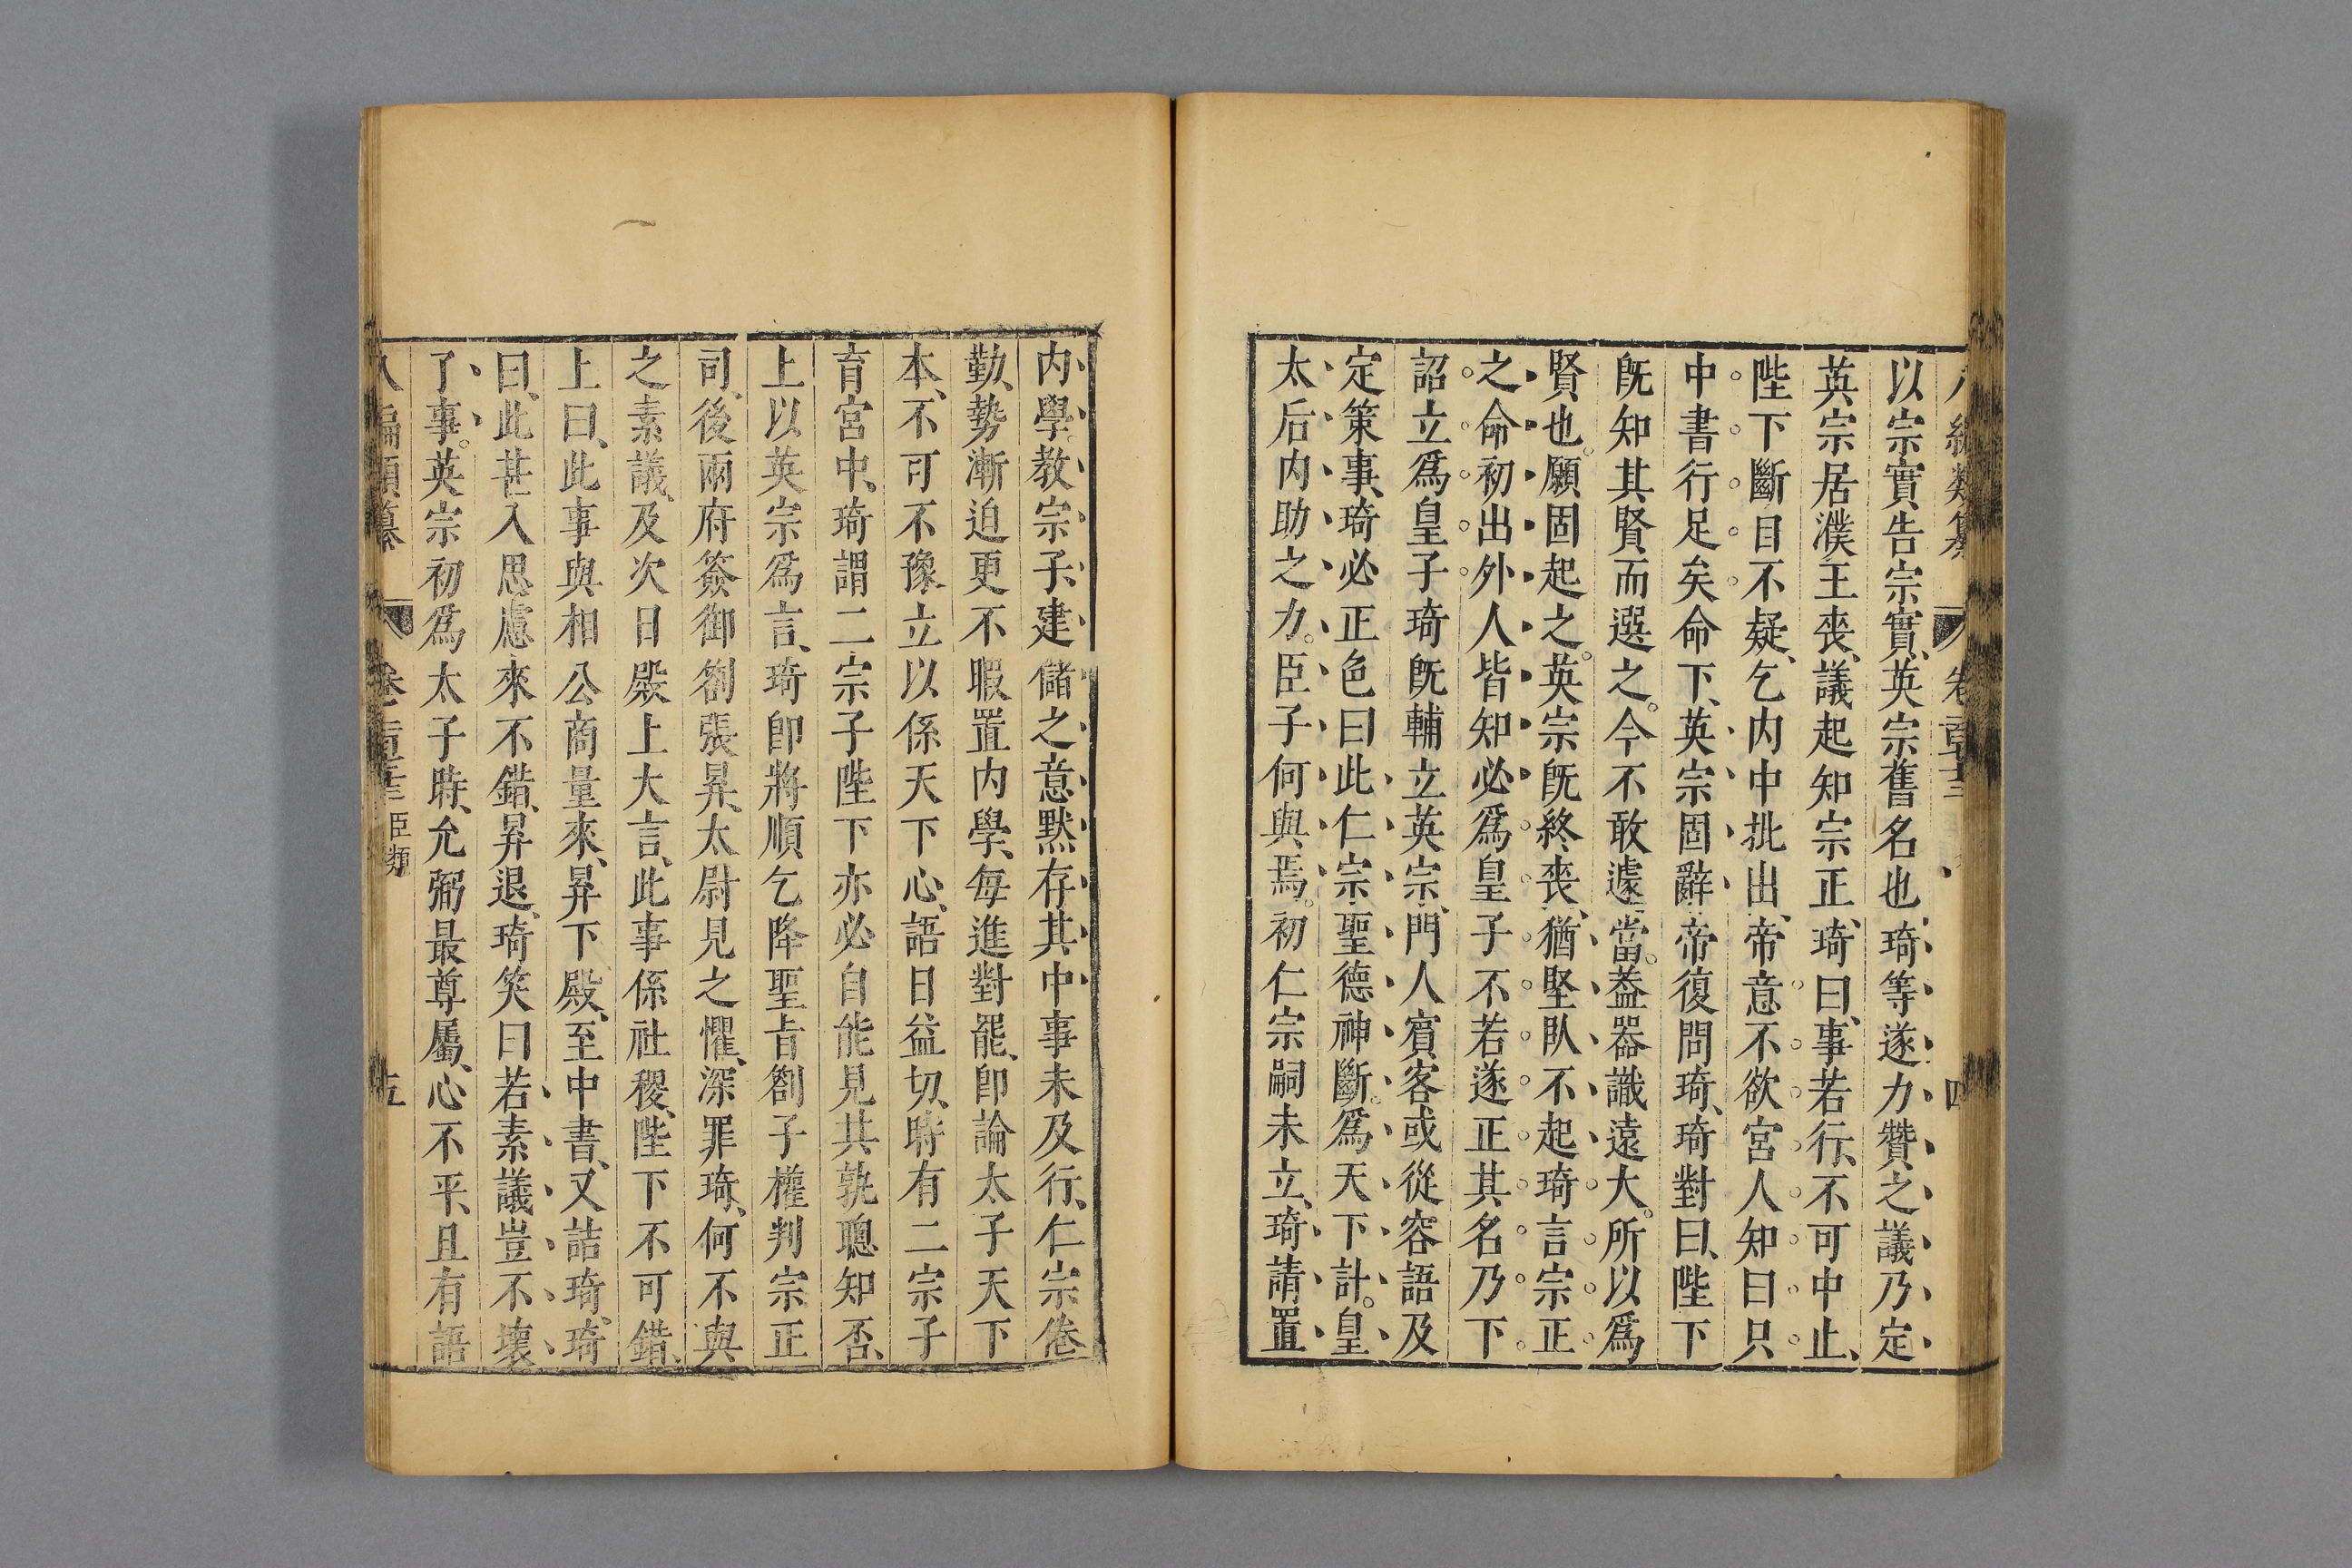 以宗實告宗實、英宗舊名也、琦等遂力贊之、議乃定
英宗居濮王喪、議起知宗正、琦曰、事若行、不可中止、
陛下斷自不疑、乞内中批出、帝意不欲宮人知曰只
中書行足矣命下、英宗固辭帝復問琦、琦對曰、陛下
旣知其賢而選之。今不敢遽當。葢器識遠大。所以爲
賢也。願固起之。英宗旣終喪、猶堅臥不起琦言宗正
之命初出外人皆知必爲皇子不若遂正其名乃下
詔立爲皇子琦旣輔立英宗、門人賓客或從容語及
定策事、琦必正色曰此仁宗聖德神斷。爲天下計。皇
太后内助之力。臣子何與焉。初仁宗嗣未立、琦請置
内學。教宗子、建儲之意默存其中事未及行、仁宗倦
勤、勢漸迫更不暇置内學、每進對罷、卽論太子天下
本、不可不豫立以係天下心、語日益切、時有二宗子
育宮中、琦謂二宗子陛下亦必自能見其孰聰知否、
上以英宗爲言、琦卽將順乞降聖旨劄子權判宗正
司、後兩府簽御劄張昇、太尉見之懼、深罪琦、何不與
之素議、及次日殿上大言、此事係社稷、陛下不可錯、
上曰、此事與相公商量來、昇下殿、至中書、又詰琦、琦
曰、此甚入思慮來不錯、昇退、琦笑曰若素議豈不壞
了事。英宗初爲太子時、允弼最尊屬、心不平、且有語